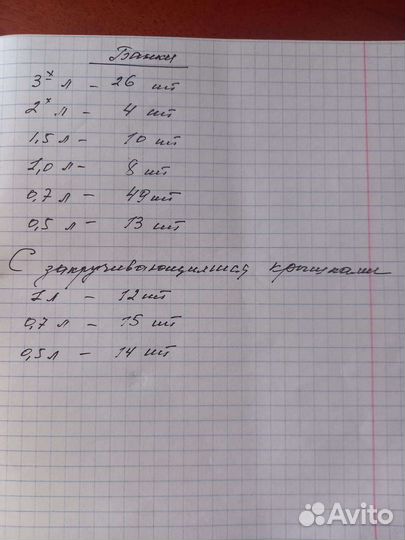 Банки
3х л - 26 шт
2х л - 4 шт
1,5 л - 10 шт
1,0 л - 8 шт
0,7 л - 49 шт
0,5 л - 13 шт
С закручивающимися крышками
1 л - 12 шт
0,7 л - 15 шт
0,5 л - 14 шт
Avito